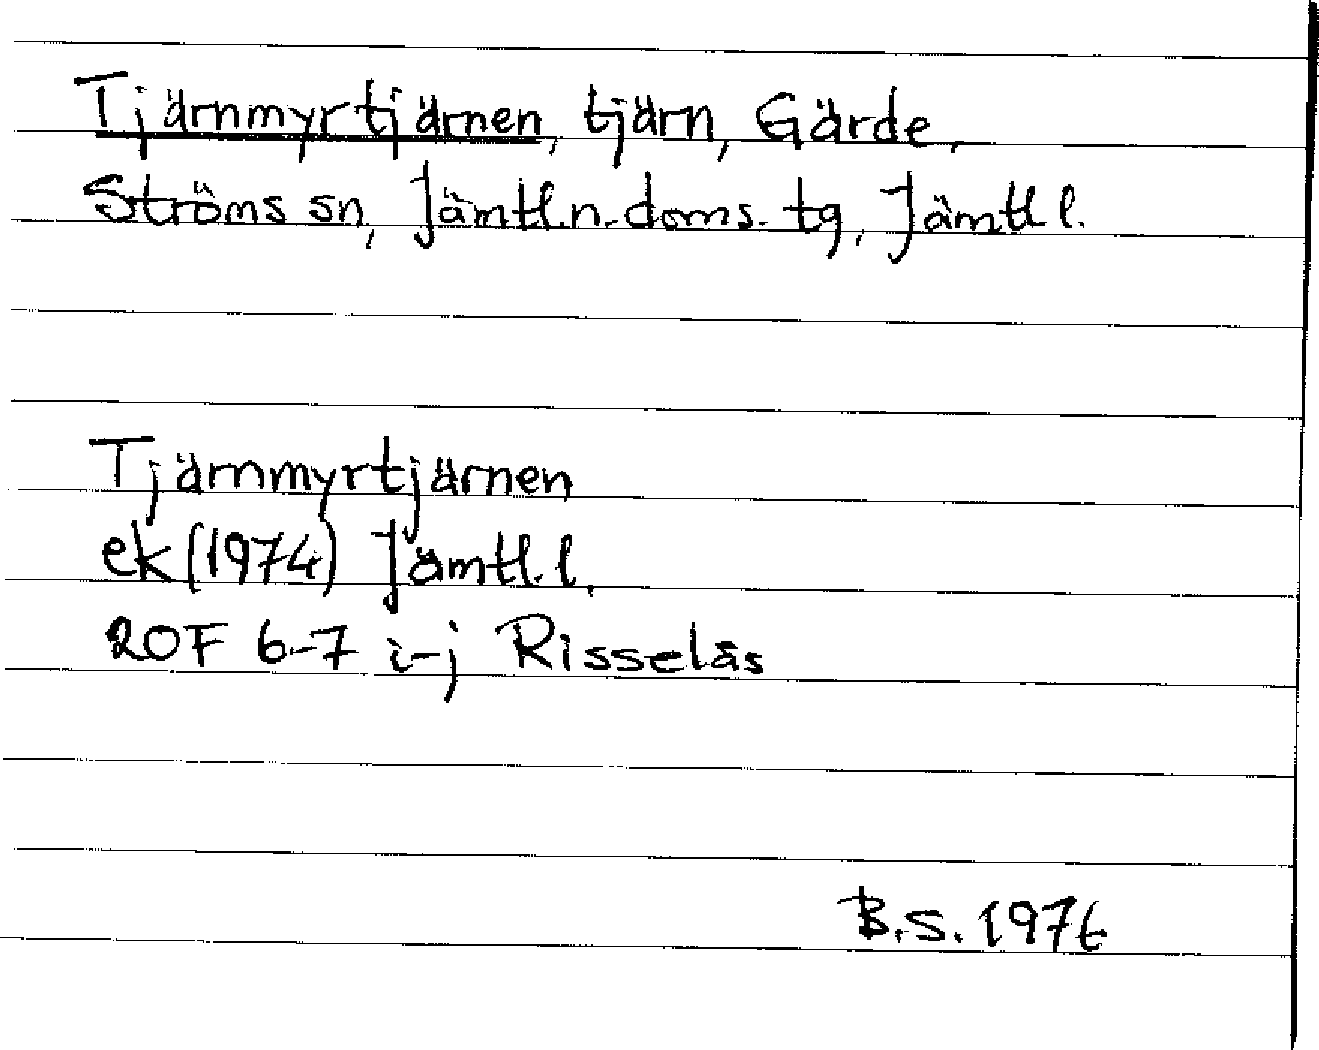 Tjärnmyrtjärnen, tjärn, Gärde,
Ströms sn, Jämtl.n.doms.tg, Jämtl l.
Tjärnmyrtjärnen
ek (1974) Jämtl.l.
20F 6-7 i-j Risselås
B.S. 1976